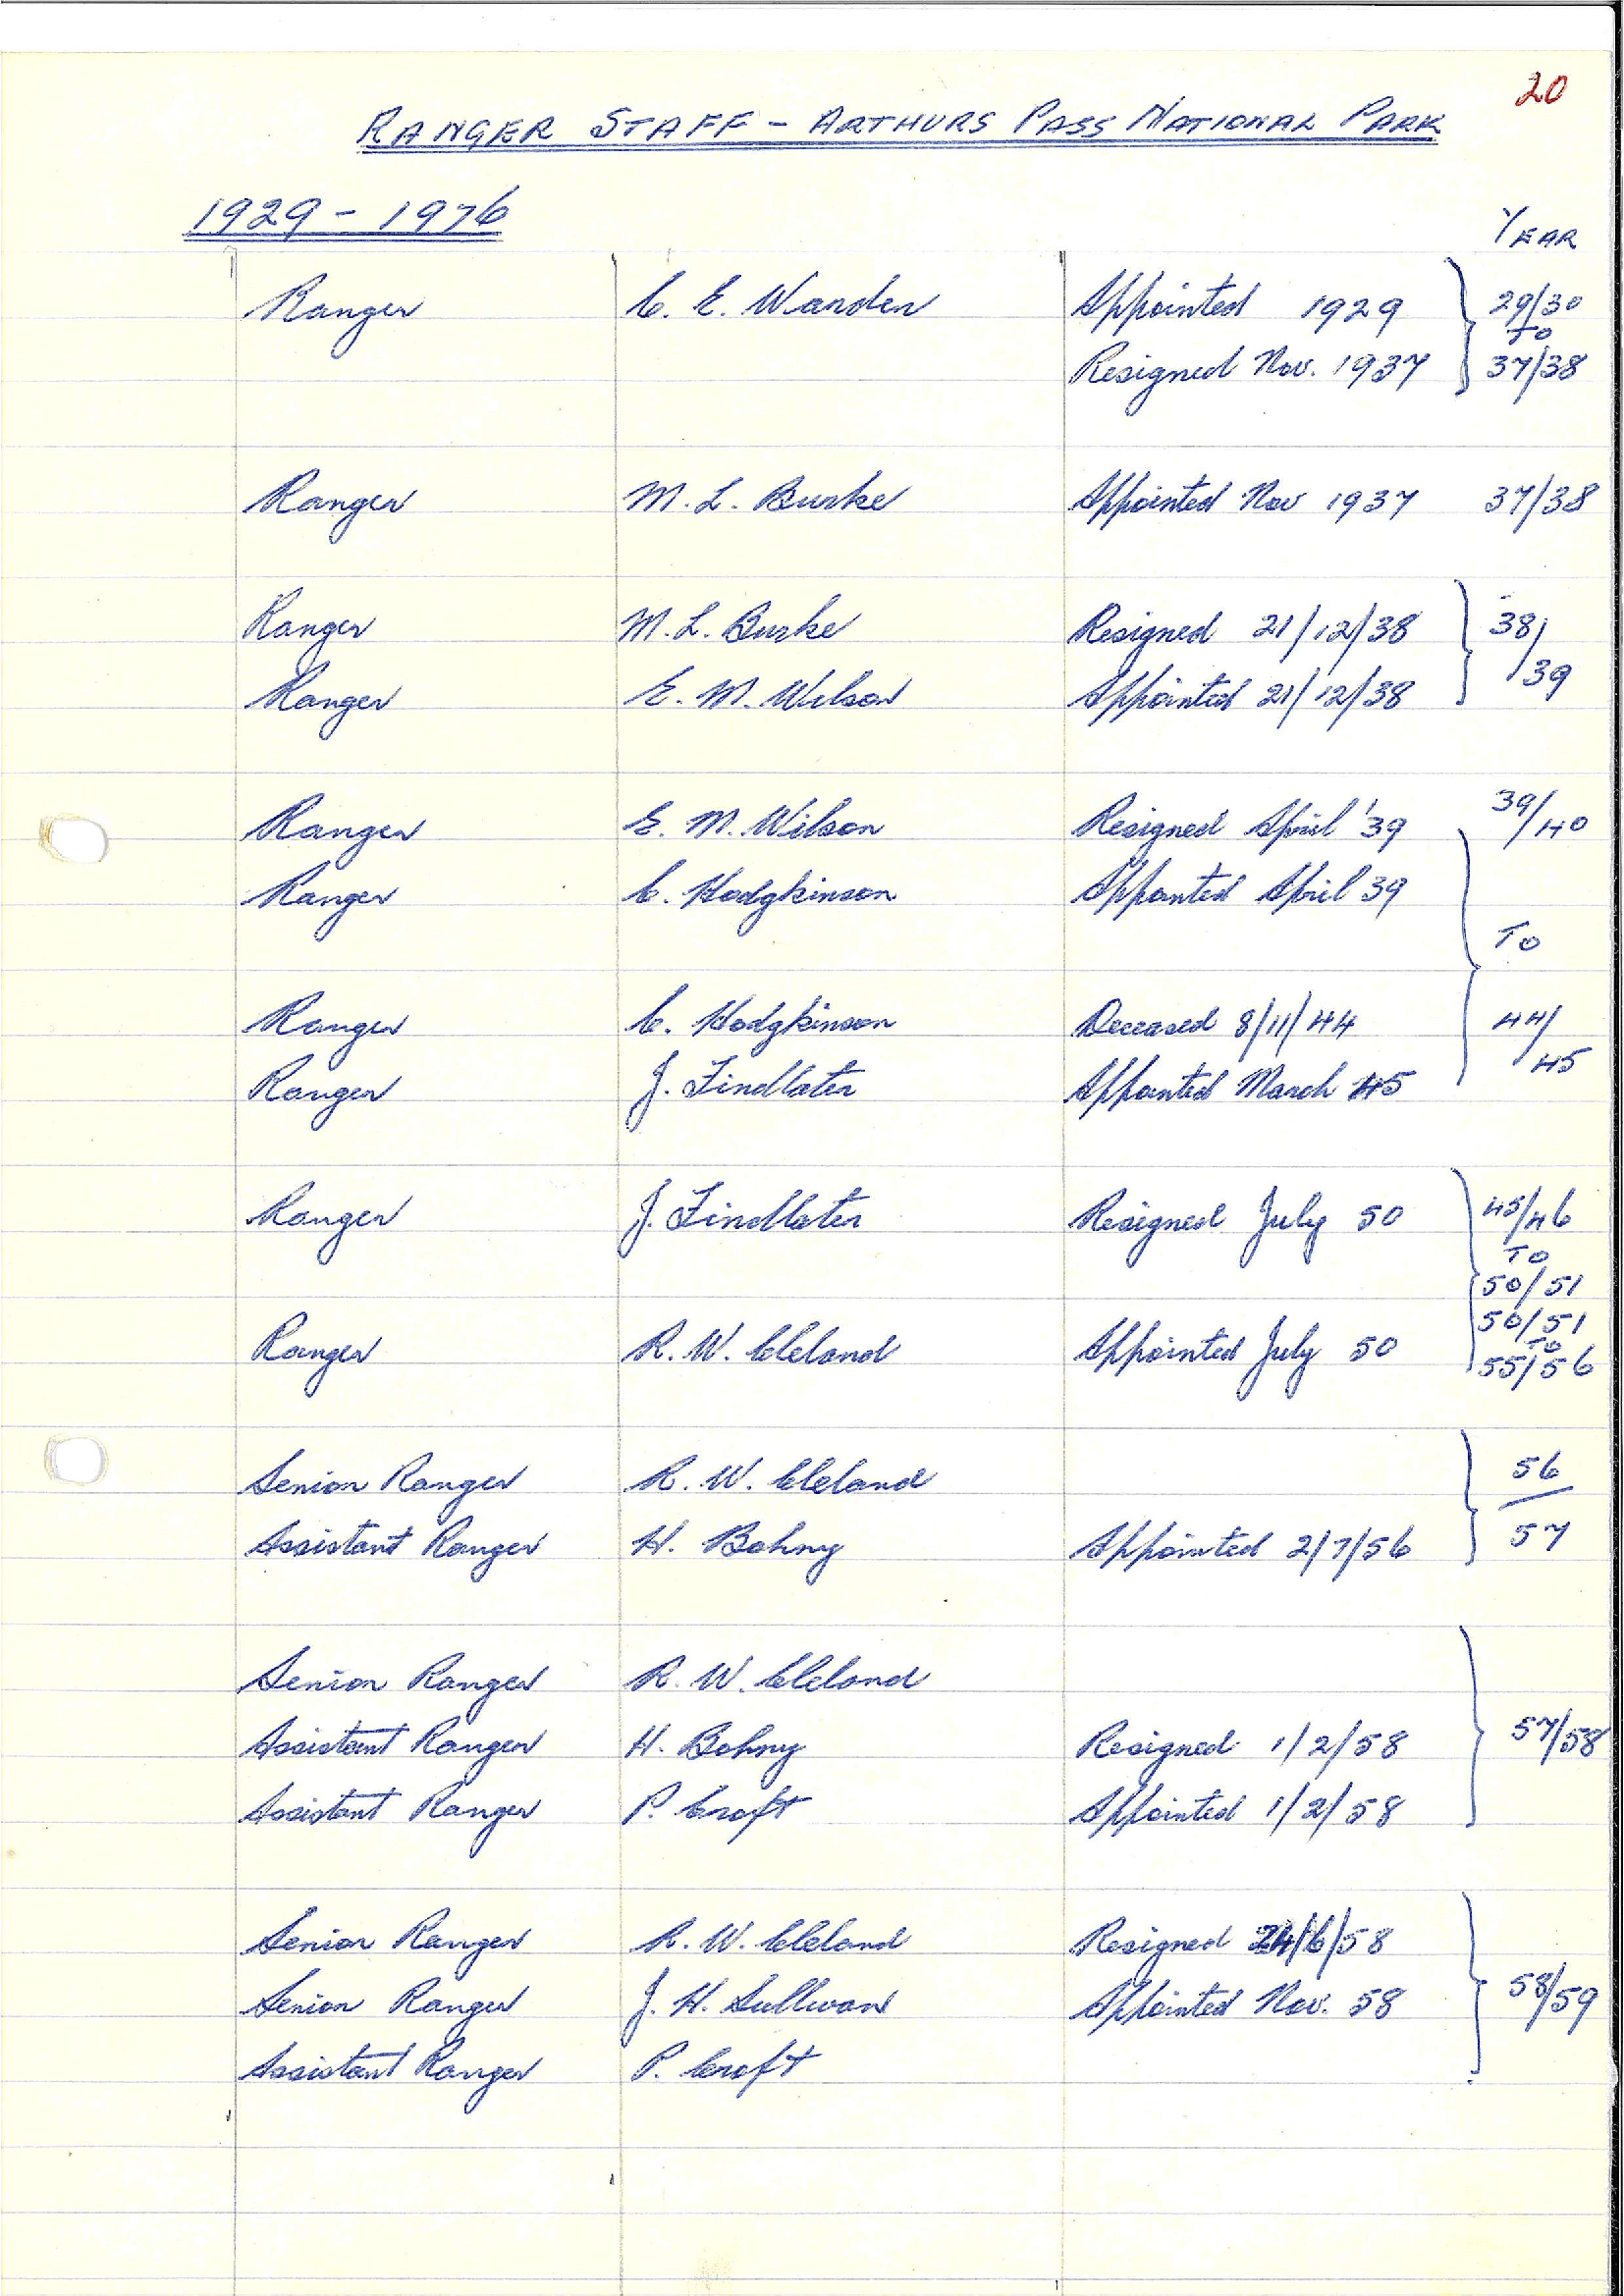 20
RANGER STAFF - ARTHURS PASS NATIONAL PARK
1929 - 1976
YEAR
Ranger C. E. Warden Appointed 1929 29/30
TO
Resigned Nov. 1937 37/38
Ranger M. L. Burke Appointed Nov 1937 37/38
Ranger M. L. Burke Resigned 21/12/38 38/
39
Ranger E. M. Wilson Appointed 21/12/38
Ranger E. M. Wilson Resigned April '39 39/40
Ranger C. Hodgkinson Appointed April 39
TO
Ranger C. Hodgkinson Deceased 8/11/44 44/
45
Ranger J. Findlater Appointed March 45
Ranger J. Findlater Resigned July 50 45/46
TO
50/51
50/51
Ranger R. W. Cleland Appointed July 50 TO
55/56
Senior Ranger R. W. Cleland 56
Assistant Ranger H. Bohny Appointed 2/7/56 57
Senior Ranger R. W. Cleland
Assistant Ranger H. Bohny Resigned 1/2/58 57/58
Assistant Ranger P. Croft Appointed 1/2/58
Senior Ranger R. W. Cleland Resigned 24/6/58
Senior Ranger J. H. Sullivan Appointed Nov. 58 58/59
Assistant Ranger P. Croft